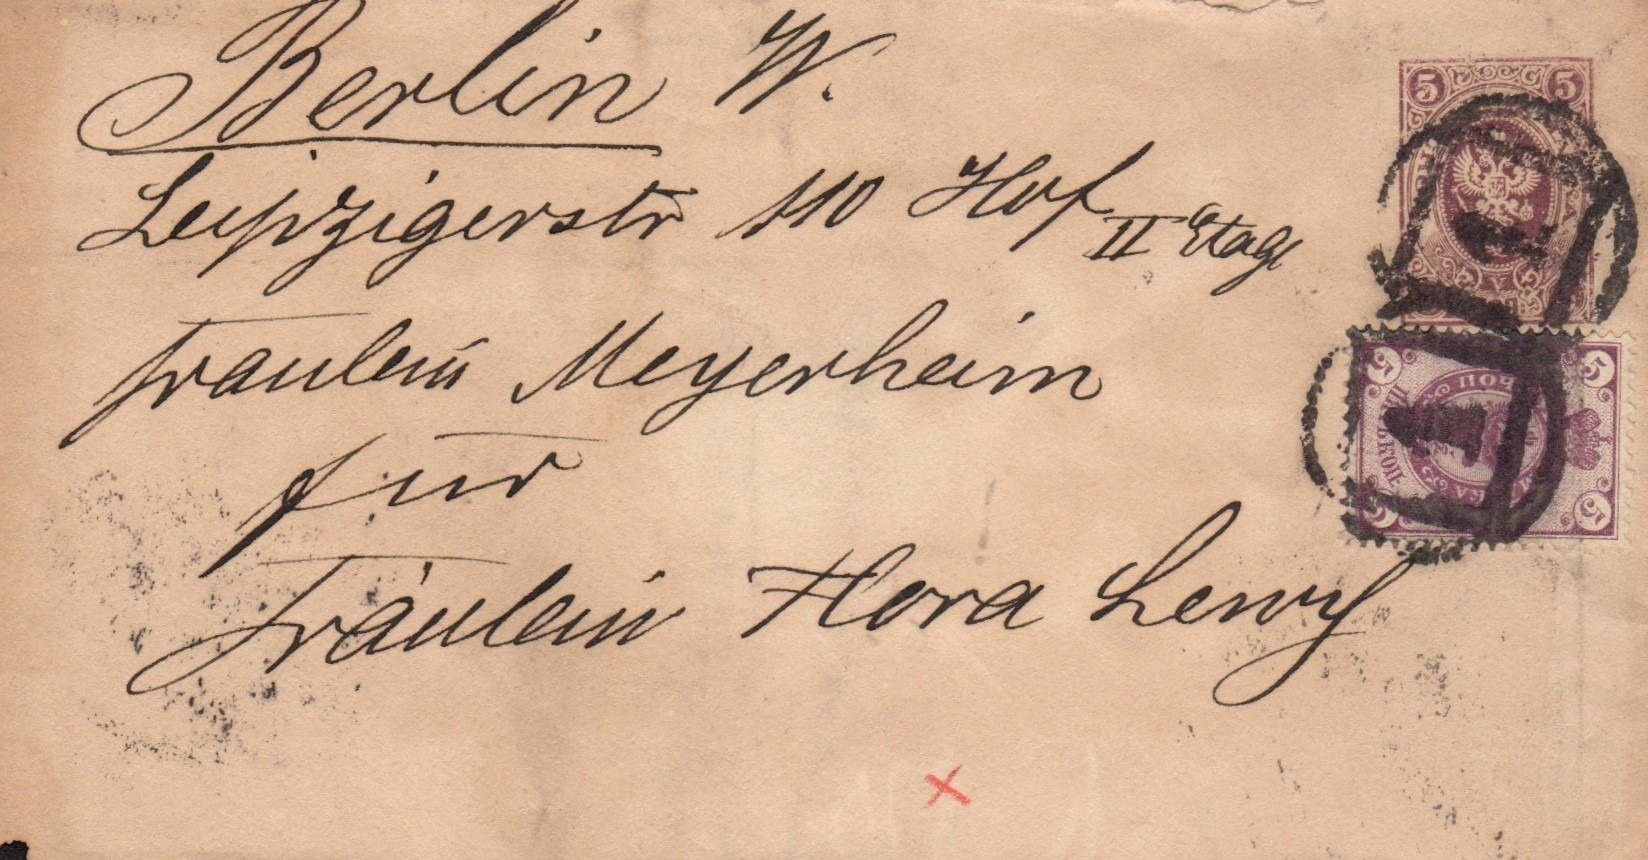 Berlin W.
Leipzigerstr 110 Hof II Etage
Fräulein Meyerheim
für
Fräulein Flora Lewy
5 5
5 5
5
1
1